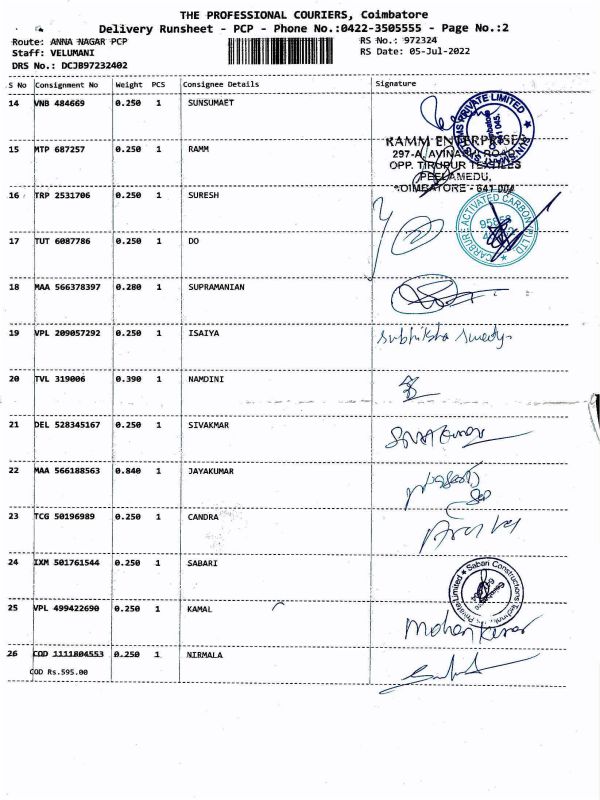 THE PROFESSIONAL COURIERS, Coimbatore
Delivery Runsheet - PCP - Phone No.:0422-3505555 - Page No.:2
Route: ANNA NAGAR PCP
RS No.: 972324
Staff: VELUMANI
RS Date: 05-Jul-2022
DRS No.: DCJB97232402
S No Consignment No Weight PCS Consignee Details Signature
14 VNB 484669 0.250 1 SUNSUMAET
PRIVATE LIMITED
15 MTP 687257 0.250 1 RAMM
RAMM ENTERPRISES
297-A, AVINASHI ROAD
OPP. TIRUPUR TEXTILES
PEELAMEDU,
COIMBATORE - 641 004
16 TRP 2531706 0.250 1 SURESH
CARBURE ACTIVATED CARBON (P) LTD
17 TUT 6087786 0.250 1 DO
18 MAA 566378397 0.280 1 SUPRAMANIAN
19 VPL 209057292 0.250 1 ISAIYA
20 TVL 319006 0.390 1 NAMDINI
21 DEL 528345167 0.250 1 SIVAKMAR
22 MAA 566188563 0.840 1 JAYAKUMAR
23 TCG 50196989 0.250 1 CANDRA
24 IXM 501761544 0.250 1 SABARI
Sabari Constructions
25 VPL 499422690 0.250 1 KAMAL
26 COD 1111804553 0.250 1 NIRMALA
COD Rs.595.00